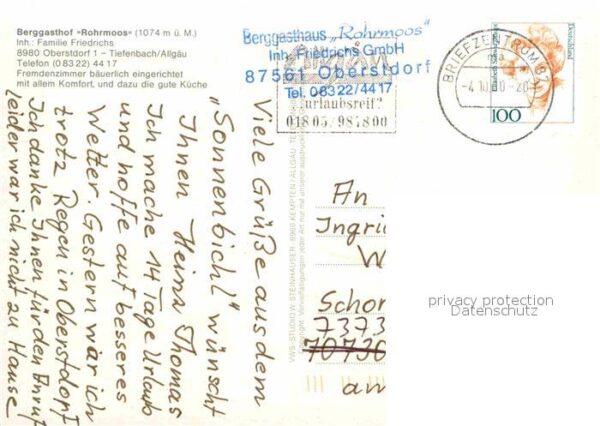 Berggasthof »Rohrmoos« (1074 m ü. M.)
Inh.: Familie Friedrichs
8980 Oberstdorf 1 – Tiefenbach/Allgäu
Telefon (0 83 22) 44 17
Fremdenzimmer bäuerlich eingerichtet
mit allem Komfort, und dazu die gute Küche
Berggasthaus „Rohrmoos“
Inh. Friedrichs GmbH
87561 Oberstdorf
Tel. 08322/4417
urlaubsreif?
01805/987800
BRIEFZENTRUM 87
ma
-4.10.00-20
Deutschland
100
Viele Grüße aus dem
"Sonnenbichl" wünscht
Ihnen Heinz Thomas
Ich mache 14 Tage Urlaub
und hoffe auf besseres
Wetter. Gestern war ich
trotz Regen in Oberstdorf
Ich danke Ihnen für den Anruf
leider war ich nicht zu Hause
VWS-STUDIO W. STEINHAUSER · 8960 KEMPTEN/ALLGÄU
An
Ingri
W
Schor
7373
70736
am
privacy protection
Datenschutz